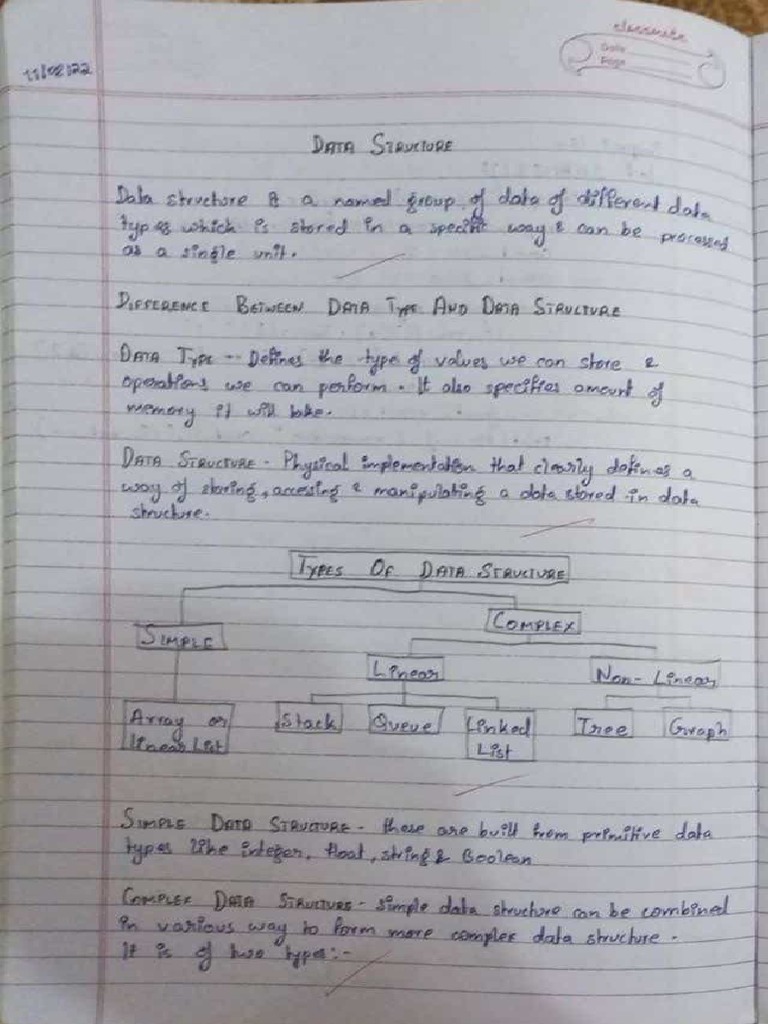 classmate
Date
Page
11/08/22
DATA STRUCTURE
Data structure is a named group of data of different data
types which is stored in a specific way & can be processed
as a single unit.
DIFFERENCE BETWEEN DATA TYPE AND DATA STRUCTURE
DATA TYPE - Defines the type of values we can store &
operations we can perform. It also specifies amount of
memory it will take.
DATA STRUCTURE - Physical implementation that clearly defines a
way of storing, accessing & manipulating a data stored in data
structure.
TYPES OF DATA STRUCTURE
SIMPLE
COMPLEX
Linear
Non-Linear
Array or
linear List
Stack
Queue
Linked
List
Tree
Graph
SIMPLE DATA STRUCTURE - these are built from primitive data
types like integer, float, string & Boolean
COMPLEX DATA STRUCTURE - simple data structure can be combined
in various way to form more complex data structure.
It is of two types:-